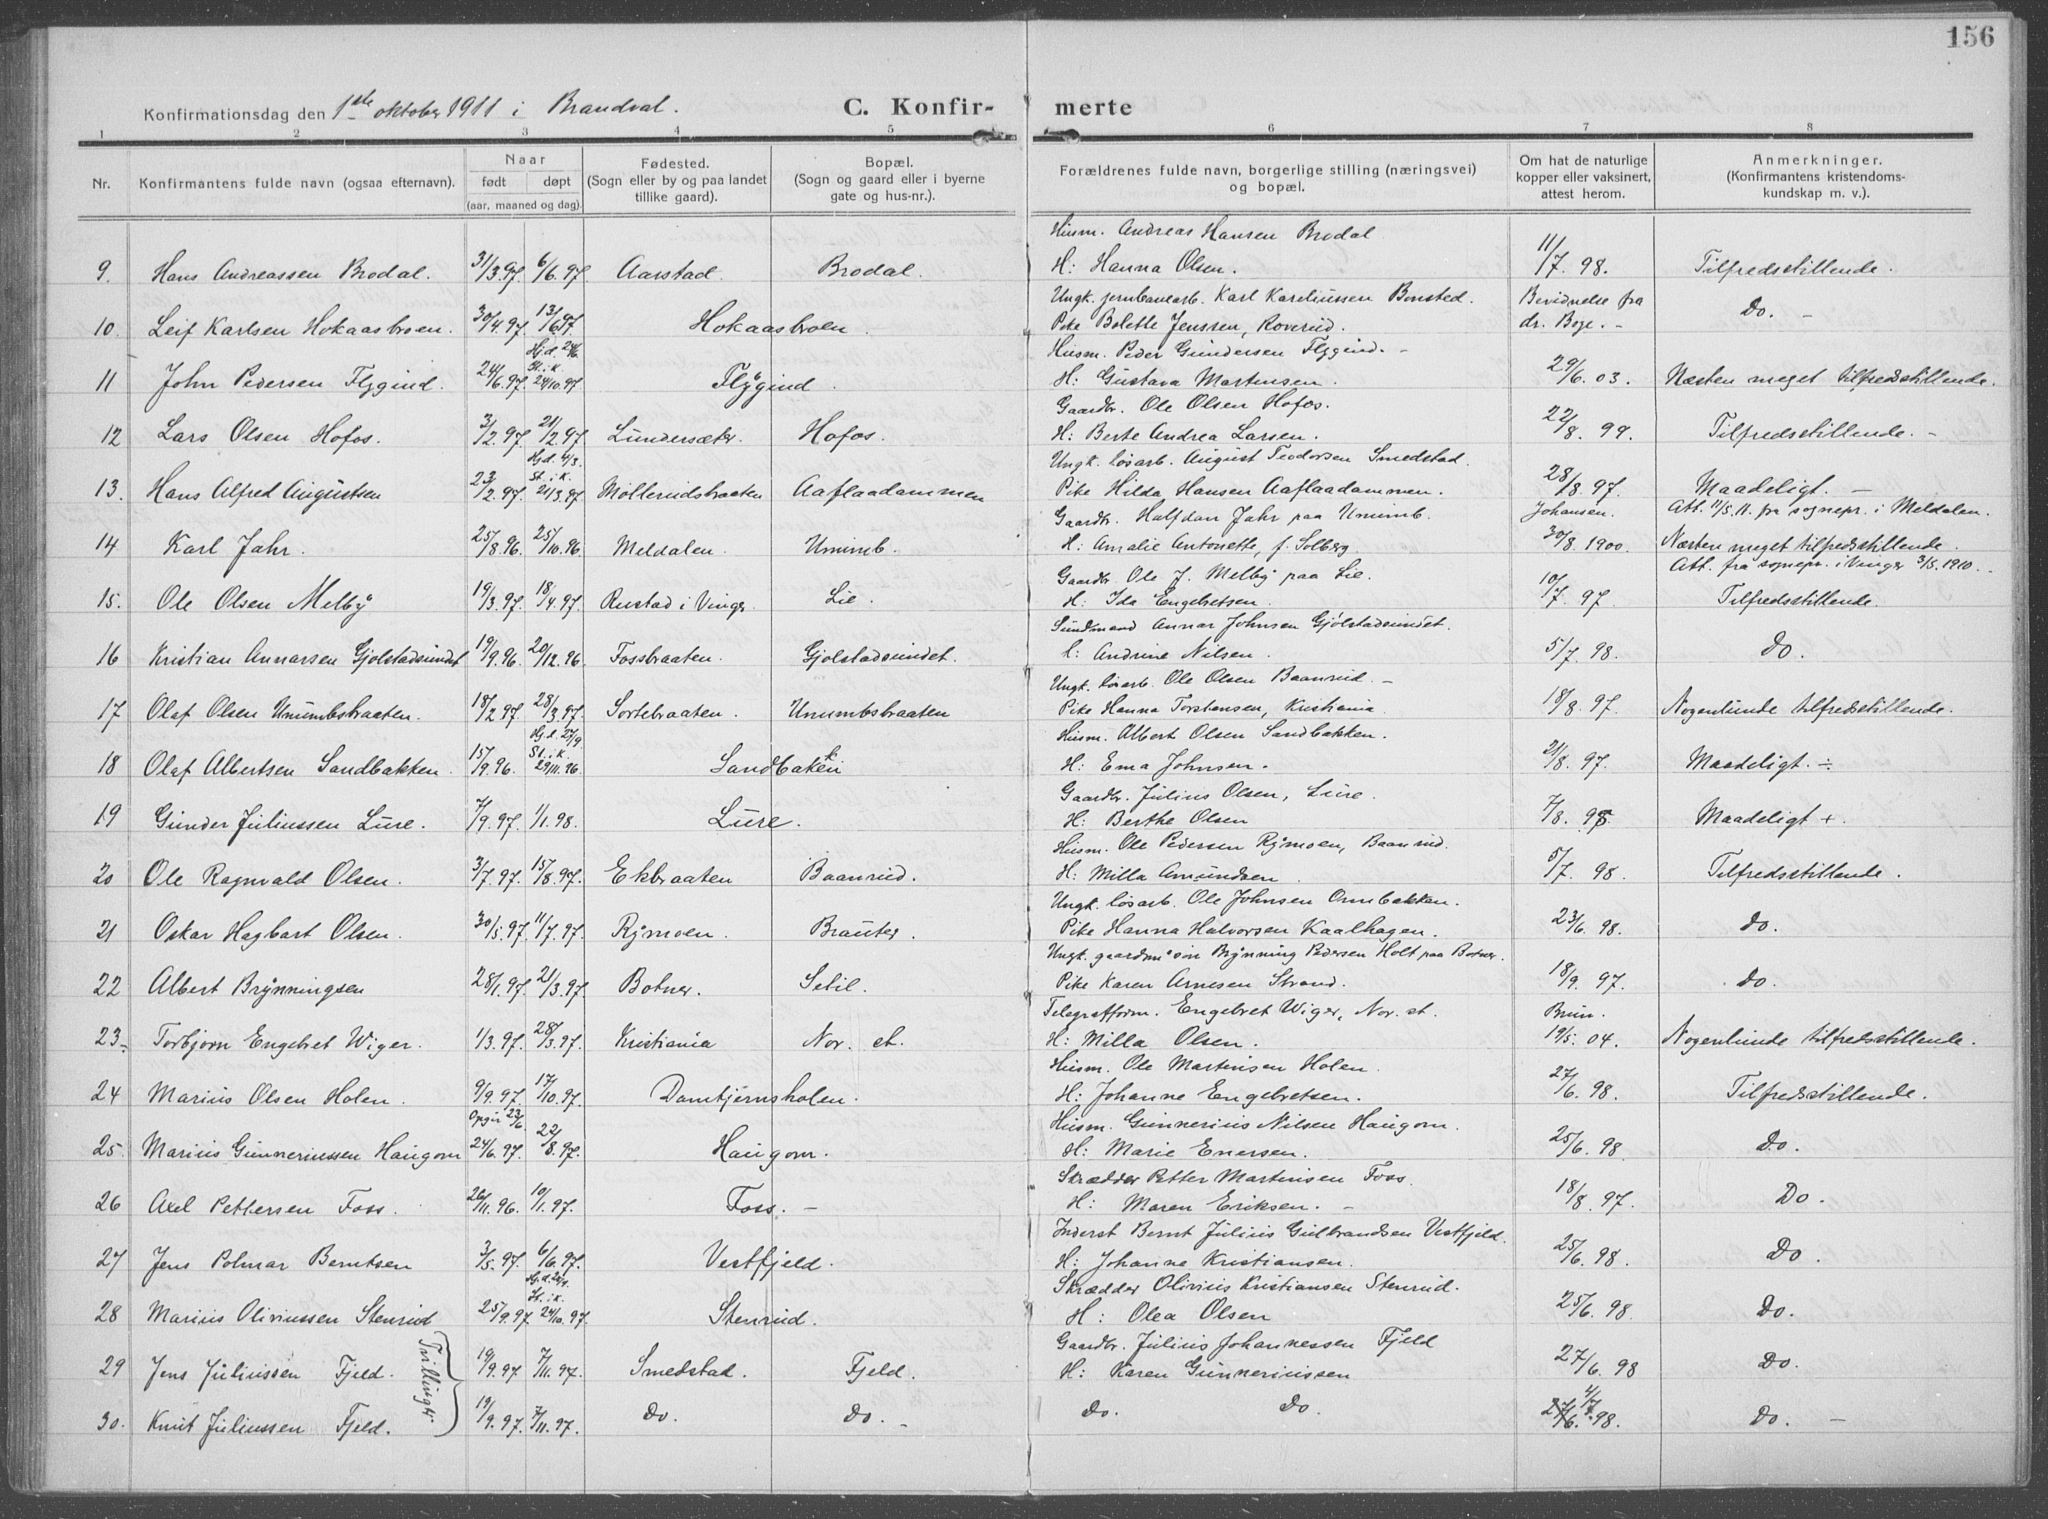 156
Konfirmationsdag den 1ste oktober 1911 i Brandval. C. Konfirmerte
1 2 3 4 5 6 7 8
Nr. Konfirmantens fulde navn (ogsaa efternavn). Naar født døpt (aar, maaned og dag). Fødested. (Sogn eller by og paa landet tillike gaard). Bopæl. (Sogn og gaard eller i byerne gate og hus-nr.). Forældrenes fulde navn, borgerlige stilling (næringsvei) og bopæl. Om hat de naturlige kopper eller vaksinert, attest herom. Anmerkninger. (Konfirmantens kristendomskundskap m. v.).
Husm. Andreas Hansen Brodal
9. Hans Andreassen Brodal. 31/3.97. 6/6.97. Aarstad. Brodal. H: Hanna Olsen. 11/7.98. Tilfredsstillende.
Ungk. jernbanearb. Karl Kareliussen Bonsted. Bevidnelse fra
10. Leif Karlsen Hokaasbroen. 30/4.97. 13/6.97. Hokaasbroen. Pike Bolette Jenssen, Roverud. dr. Boge. - Do. -
Hjd. 24/6. Husm. Peder Gundersen Flygind. -
11 John Pedersen Flygind. 24/6.97. St. i k. 24/10.97 Flygind. H: Gustava Martinsen. 29/6.03. Næsten meget tilfredsstillende.
Gaardbr. Ole Olsen Hofos.
12 Lars Olsen Hofos. 3/2.97. 21/2.97. Lundersæter. Hofos. H: Berte Andrea Larsen. 22/8.99. Tilfredsstillende. -
Hjd. 4/3. Ungk. løsarb. August Teodorsen Smedstad.
13. Hans Alfred Augustsen 23/2.97. St. i k. 21/3.97 Møllerudsbraaten Aaflaadammen Pike Hilda Hansen Aaflaadammen. 28/8.97. Maadeligt. -
Gaardbr. Halfdan Jahr paa Unumb. Johansen. Att. 11/5.11. fra sognepr. i Meldalen.
14 Karl Jahr. 25/8.96. 25/10.96. Meldalen. Unumb. H: Amalie Antonette, f. Solberg 30/8.1900. Næsten meget tilfredsstillende.
Gaardbr Ole J. Melby paa Lie. Att. fra sognepr. i Vinger 3/5.1910.
15. Ole Olsen Melby 19/3.97. 18/4.97. Rustad i Vinger. Lie. H: Ida Engebretsen. 10/7.97 Tilfredsstillende.
Sundmand Annar Johnsen Gjølstadsundet.
16 Kristian Annarsen Gjølstadsundet 19/9.96. 20/12.96 Fossbraaten. Gjølstadsundet. H: Andrine Nilsen. 5/7.98. Do.
Ungk. løsarb. Ole Olsen Baanrud. -
17 Olaf Olsen Unumbsbraaten. 18/2.97. 28/3.97. Sortebraaten. Unumbsbraaten Pike Hanna Torstensen, Kristiania. 18/8.97. Nogenlunde tilfredsstillende.
Hj.d. 27/9. Husm. Albert Olsen Sandbakken.
18 Olaf Albertsen Sandbakken. 15/9.96. St. i k. 29/11.96. Sandbakken H: Ema Johnsen. 21/8.97. Maadeligt. ÷
Gaardbr. Julius Olsen, Lure.
19 Gunder Juliussen Lure. 7/9.97. 1/1.98. Lure. H: Berthe Olsen 7/8.98 Maadeligt +
Husm. Ole Pedersen Rymoen, Baanrud.
20 Ole Ragnvald Olsen. 3/7.97. 15/8.97. Ekbraaten Baanrud. H: Milla Amundsen. 5/7.98. Tilfredsstillende.
Ungk. løsarb. Ole Johnsen Ornbakken.
21 Oskar Hagbart Olsen. 30/5.97. 11/7.97. Rymoen. Brauter. Pike Hanna Halvorsen Kaalhagen. 23/6.98. Do.
Ungk. gaardm. søn Brynning Pedersen Holt paa Botner.
22 Albert Brynningsen 28/1.97. 21/3.97. Botner. Setil. Pike Karen Arnesen Strand. 18/9.97. Do.
Telegrafform. Engebret Wiger, Nor. st. Bruun.
23. Torbjørn Engebret Wiger. 1/3.97. 28/3.97. Kristiania Nor. st. H: Milla Olsen. 19/5.04. Nogenlunde tilfredsstillende.
Husm. Ole Martinsen Holen.
24 Marius Olsen Holen. 9/9.97. 17/10.97. Damtjernsholen. H: Johanne Engebretsen. 27/6.98. Tilfredsstillende.
Opgir 23/6 Husm. Gunnerius Nilsen Haugom.
25. Marius Gunneriussen Haugom 24/6.97. 22/8.97. Haugom. H: Marie Enersen. 25/6.98. Do.
Skrædder Petter Martinsen Foss.
26 Axel Pettersen Foss. 26/11.96. 10/1.97. Foss. - H: Maren Eriksen. - 18/8.97. Do.
Inderst Bernt Julius Gulbrandsen Vestfjeld.
27 Jens Polmar Berntsen 3/5.97. 6/6.97. Vestfjeld. H: Johanne Kristiansen. 25/6.98. Do
Skrædder Olivius Kristiansen Stenrud.
28 Marius Oliviussen Stenrud 25/9.97. St. i k. 24/10.97. Stenrud. H: Olea Olsen 25/6.98 Do.
Tvillinger Gaardbr. Julius Johannessen Fjeld
29 Jens Juliussen Fjeld. 19/9.97 7/11.97. Smedstad. Fjeld. H: Karen Gunneriussen 27/6.98 Do.
30. Knut Juliussen Fjeld. 19/9.97. 7/11.97. Do. Do. - Do. Do. 4/7.98. Do. -